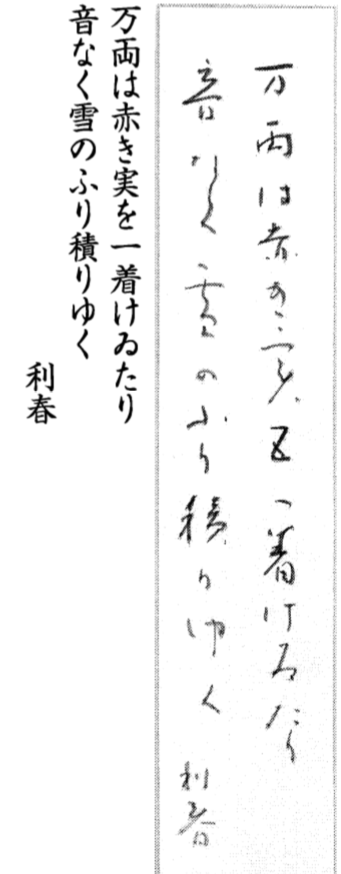 万両は赤き実五つ着けゐたり
音なく雪のふり積りゆく 利春
万両は赤き実を一着けゐたり
音なく雪のふり積りゆく
利春